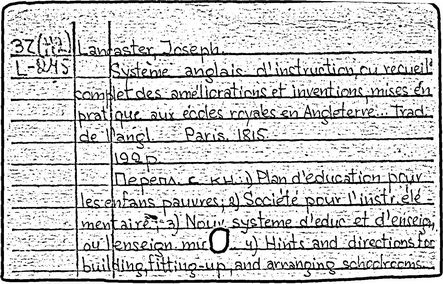 37(42) Lancaster, Joseph.
L-245 Système anglais d'instruction, ou recueil
complet des améliorations et inventions mises en
pratique aux écoles royales en Angleterre... Trad.
de l'angl. Paris. 1815.
192 p.
Перепл. с кн.: 1) Plan d'éducation pour
les enfans pauvres; 2) Société pour l'instr. élé-
mentaire; 3) Nouv. système d'éduc. et d'enseign.
ou l'enseign. 4) Hints and directions for
building, fitting-up, and arranging schoolrooms...